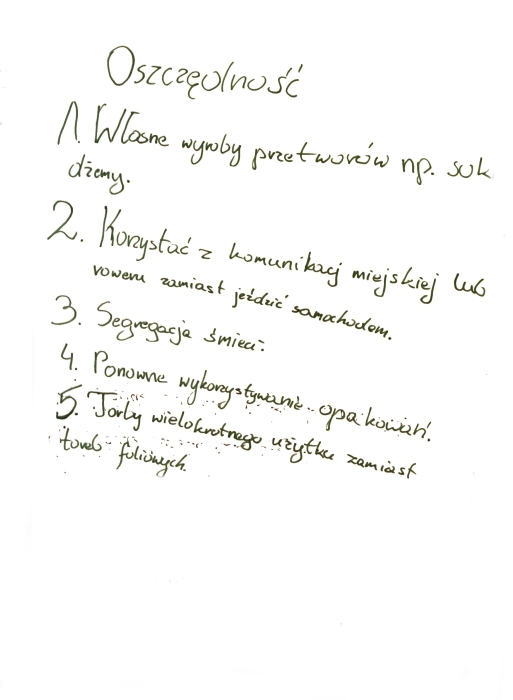 Oszczędność
1. Własne wyroby przetworów np. sok
dżemy.
2. Korzystać z komunikacj miejskiej lub
roweru zamiast jeździć samochodem.
3. Segregacja śmieci.
4. Ponowne wykorzystywanie opakowań.
5. Torby wielokrotnego użytku zamiast
toreb foliowych.